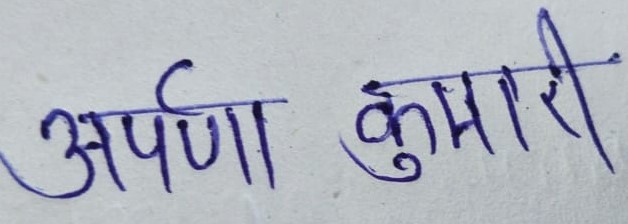 अर्पणा कुमारी